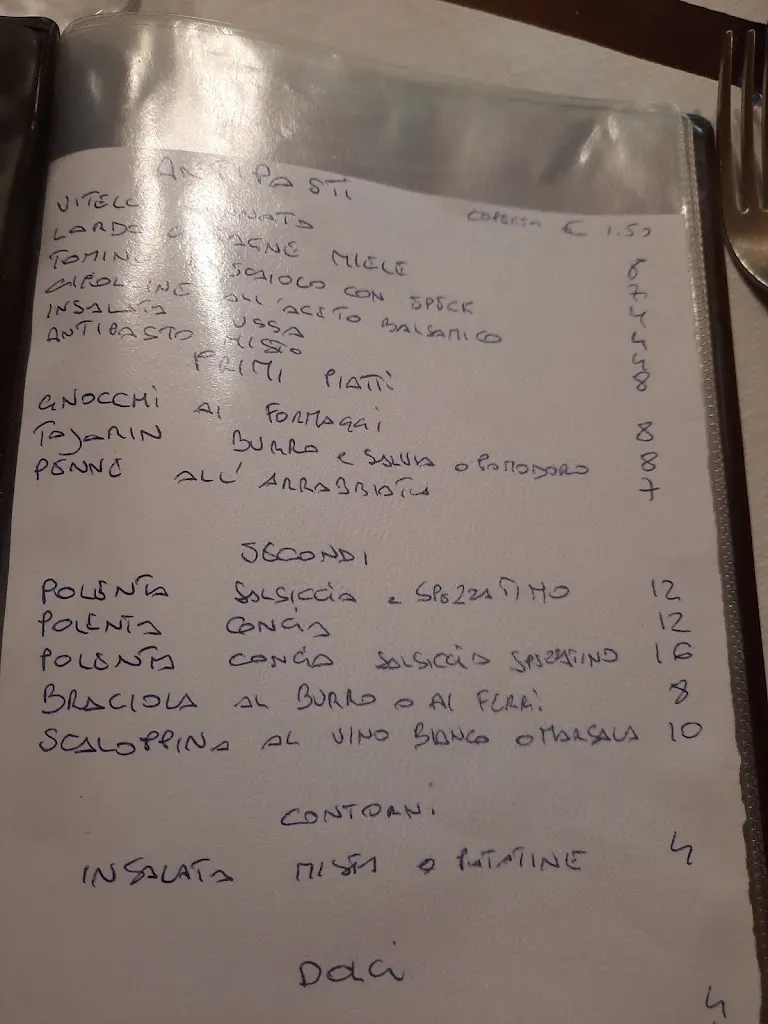 ANTIPASTI
COPERTO € 1.50
LARDO MIELE 8
CON SPECK 7
ALL'ACETO BALSAMICO 4
INSALATA RUSSA 4
ANTIPASTO MISTO 8
PRIMI PIATTI
GNOCCHI AI FORMAGGI 8
TAJARIN BURRO e SALVIA o POMODORO 8
PENNE ALL'ARRABBIATA 7
SECONDI
POLENTA SALSICCIA e SPEZZATINO 12
POLENTA CONCIA 12
POLENTA CONCIA SALSICCIA SPEZZATINO 16
BRACIOLA AL BURRO o AI FERRI 8
SCALOPPINA AL VINO BIANCO o MARSALA 10
CONTORNI
INSALATA MISTA o PATATINE 4
Dolci
4